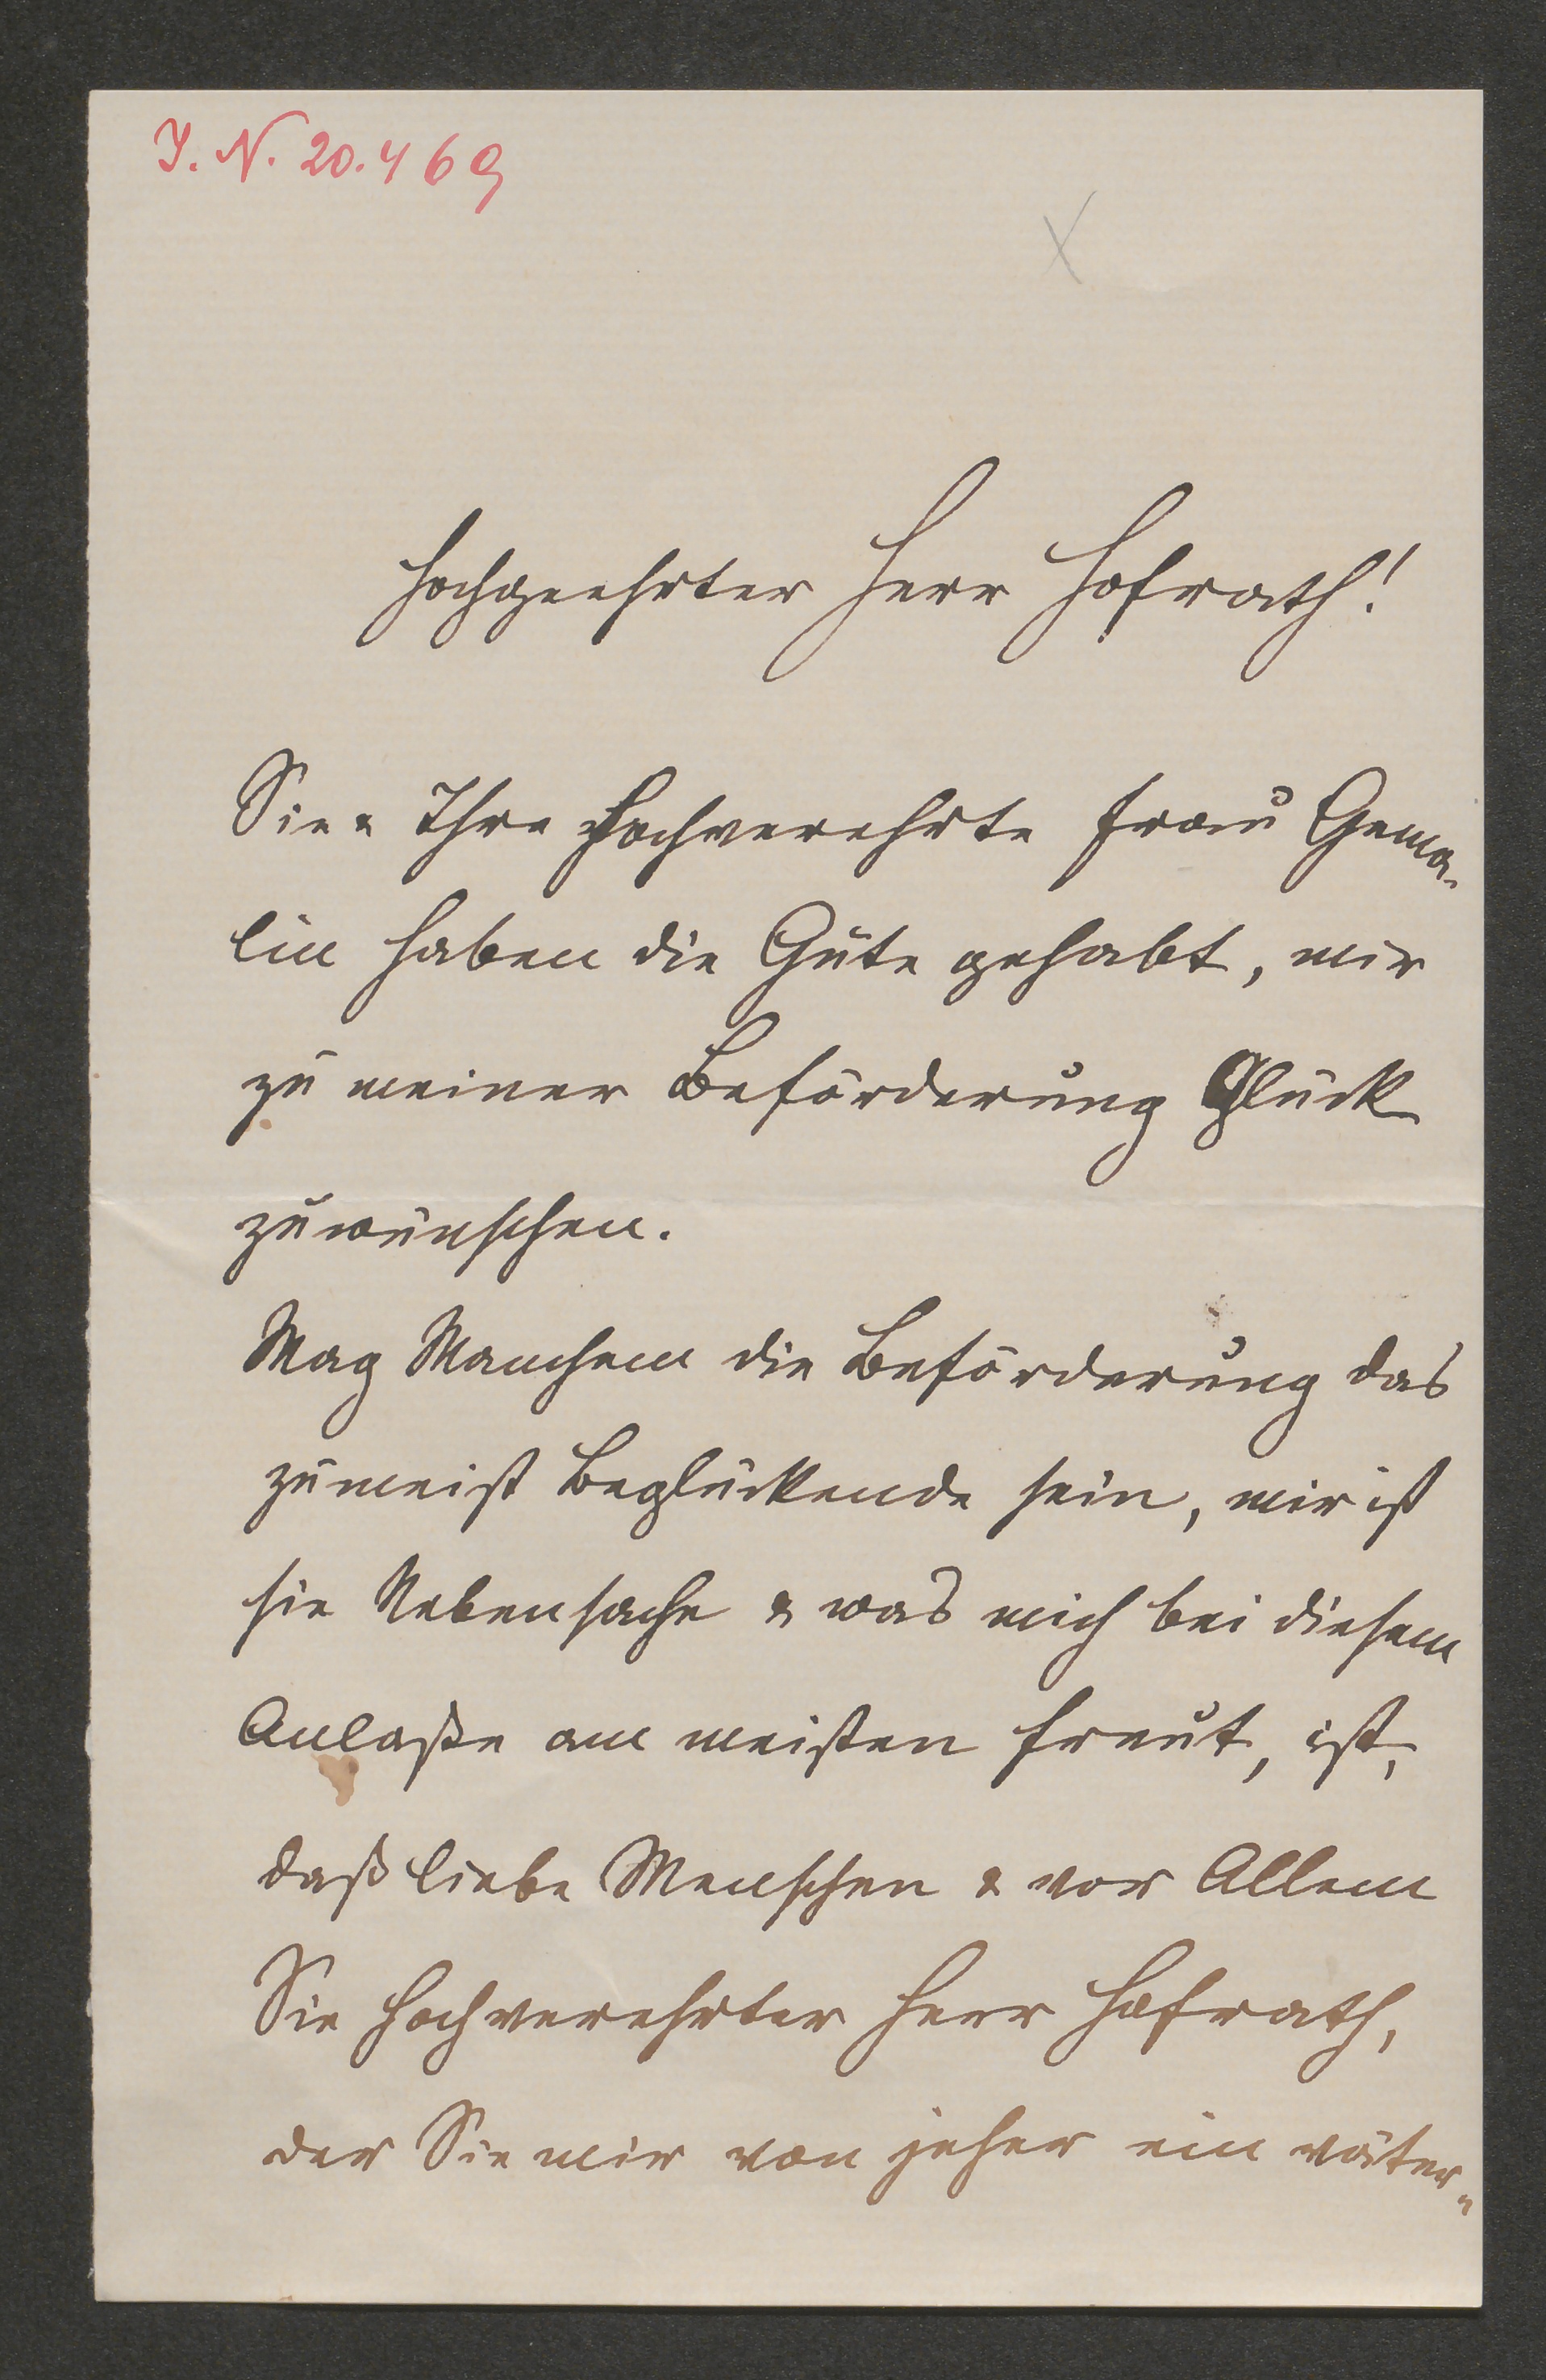 I. N. 20.469
Hochgeehrter Herr Hofrath!
Sie & Ihre hochverehrte Frau Gema-
lin haben die Güte gehabt, mir
zu meiner Beförderung Glück
zu wünschen.
Mag Manchem die Beförderung das
zumeist Beglückende sein, mir ist
sie Nebensache & was mich bei diesem
Anlaße am meisten freut, ist,
daß liebe Menschen & vor Allem
Sie hochverehrter Herr Hofrath,
der Sie mir von jeher ein väter-